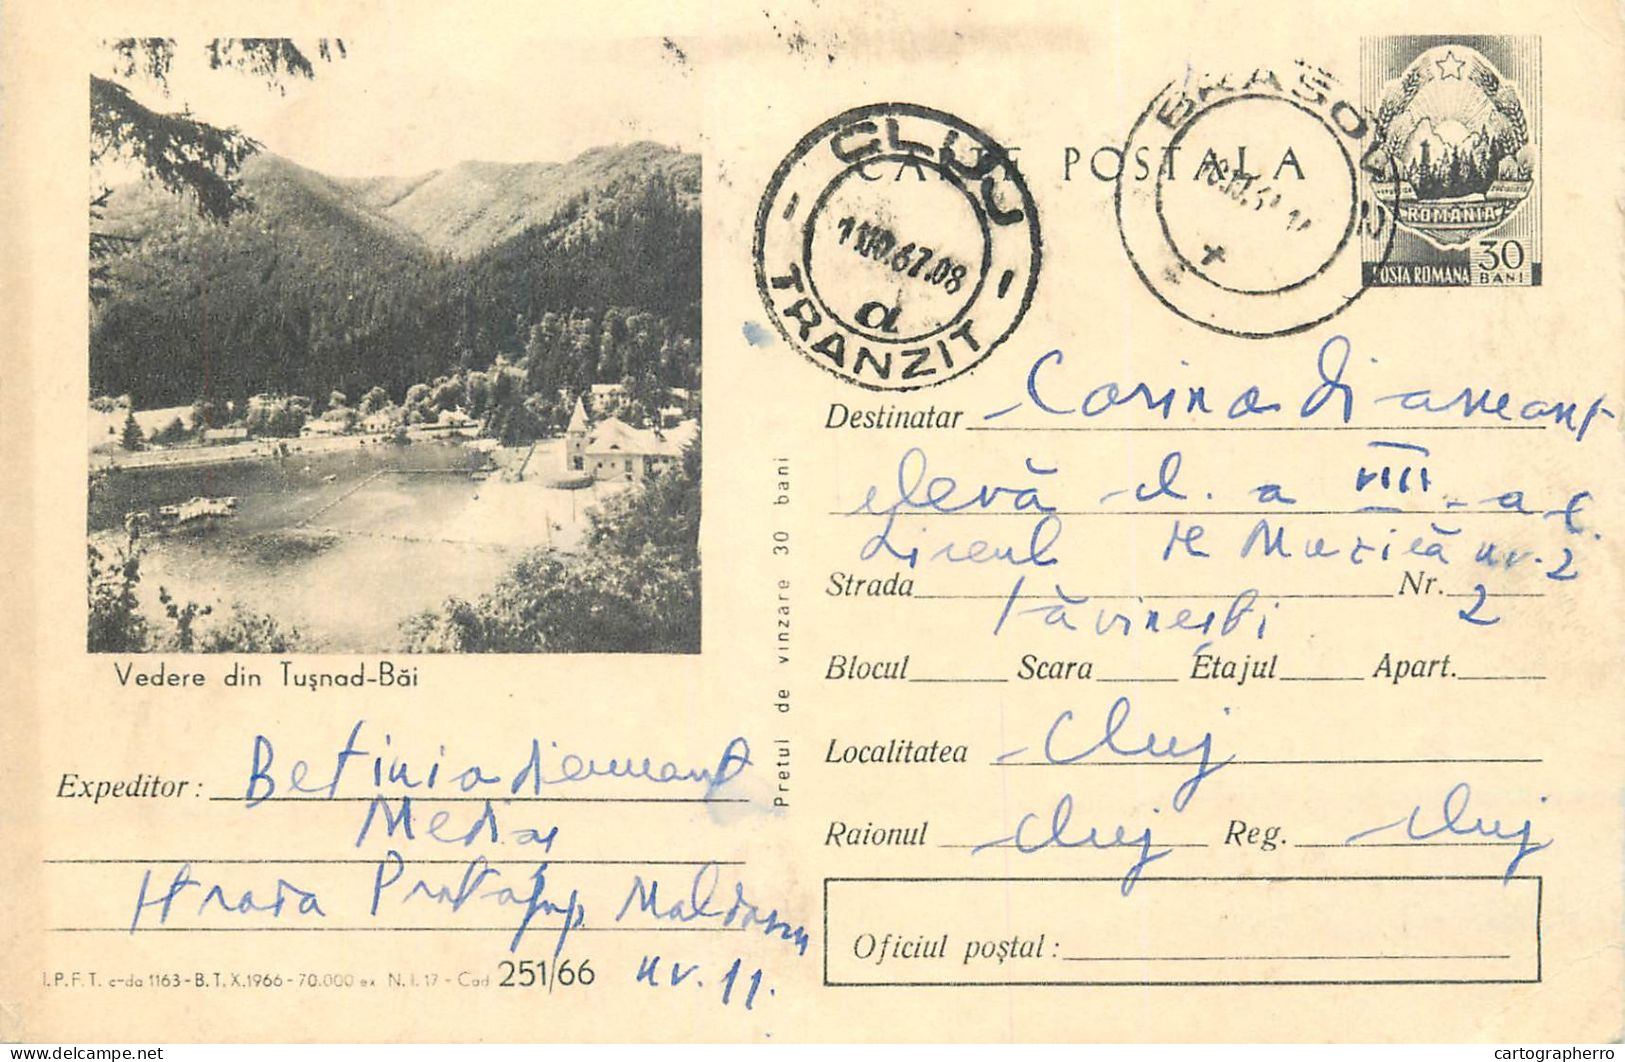 CARTE POSTALA
CLUJ
11.XII.67.08
d
TRANZIT
BRAȘOV 2
ROMANIA
POSTA ROMANA
30
BANI
Vedere din Tușnad-Băi
Expeditor: Betinia Diamant
Mediaș
Strada Protopop Moldovan
nr. 11.
I.P.F.T. c-da 1163 - B.T.X.1966 - 70.000 ex N.I.17 - Cod 251/66
Prețul de vinzare 30 bani
Destinatar Corina Diamant
elevă cl. a VIII-a C.
Liceul de Muzică nr. 2
Strada Săvinești Nr. 2
Blocul Scara Etajul Apart.
Localitatea Cluj
Raionul Cluj Reg. Cluj
Oficiul poștal:
cartographerro